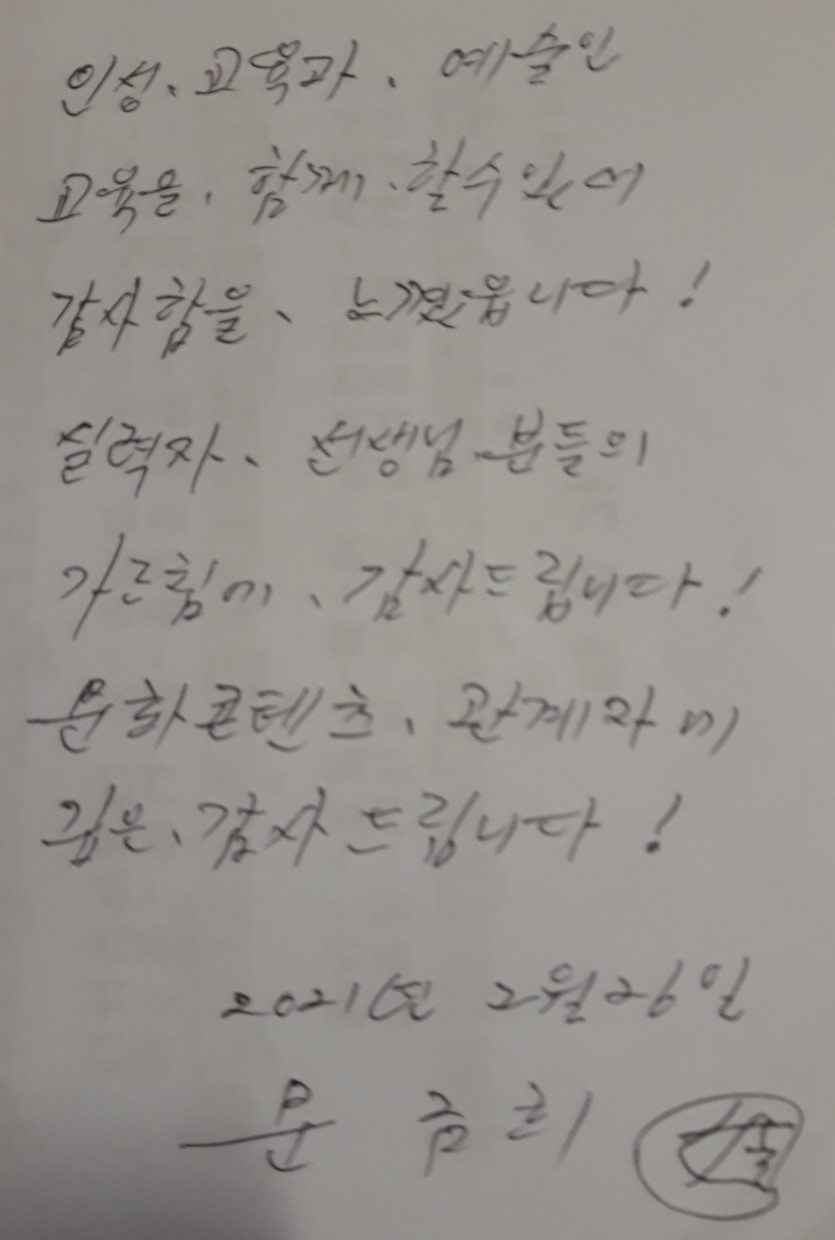 인성、교육과、예술인
교육을、함께、할수있어
감사함을、느꼈읍니다!
실력자、선생님、분들의
가르침에、감사드립니다!
문화콘텐츠、관계자에
깊은、감사드립니다!
2021년 2월26일
문금희